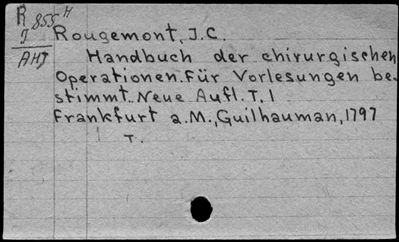 R 855 H
J
AHJ
Rougemont, J.C.
Handbuch der chirurgischen
Operationen. Für Vorlesungen be-
stimmt. Neue Aufl. T. 1
Frankfurt a.M., Guilhauman, 1797
T.